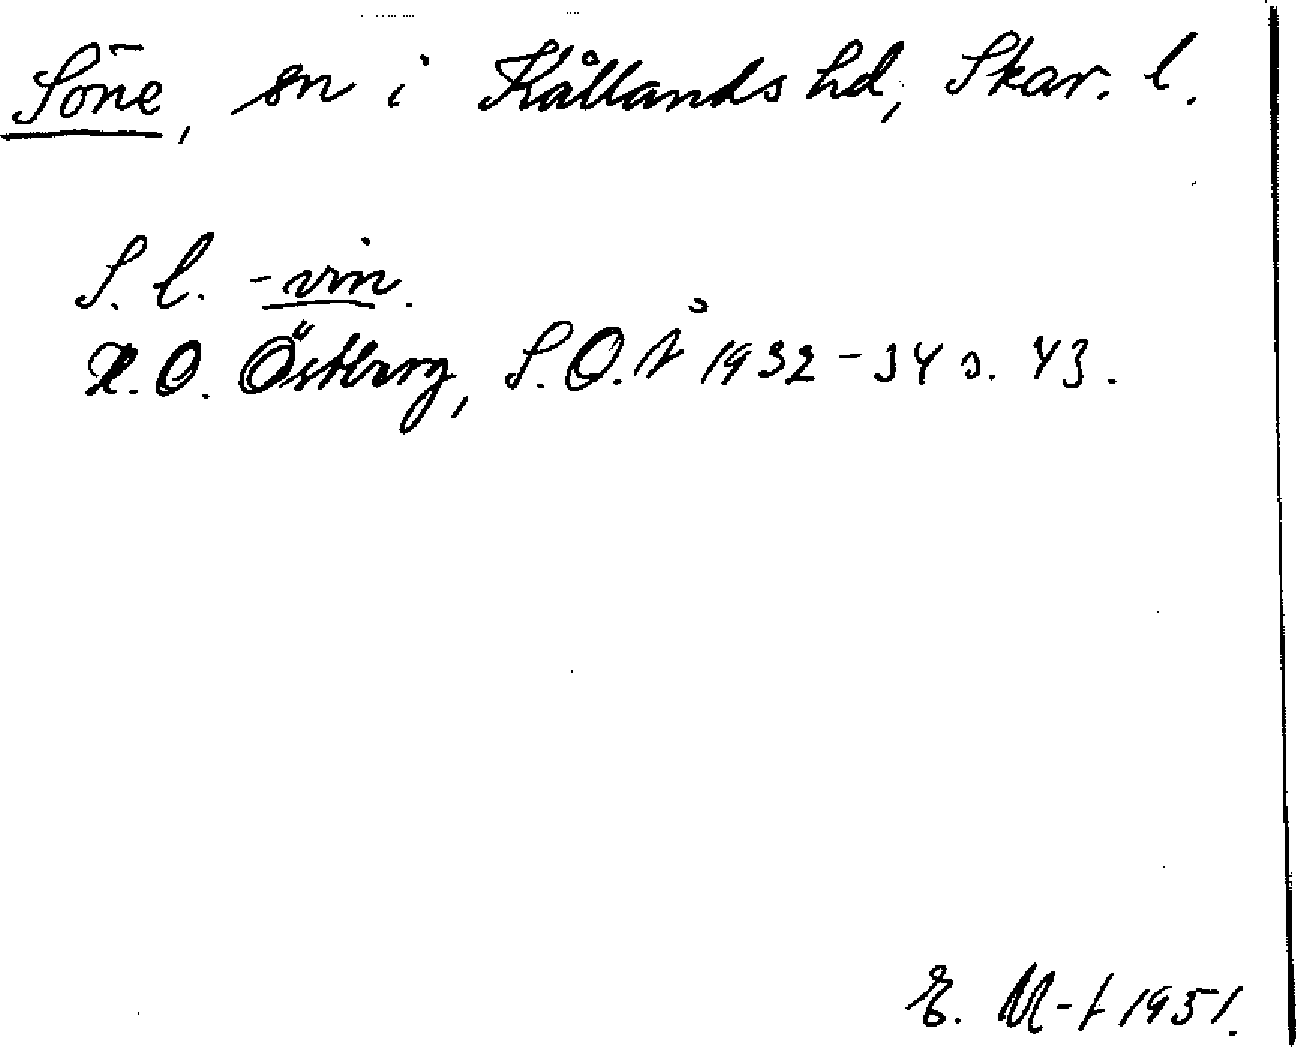 Söne, sn i Kållands hd, Skar. l.
S. l. -vin.
H. O. Östberg, S.O.Å 1932-34 s. 43.
E. M-t 1951.